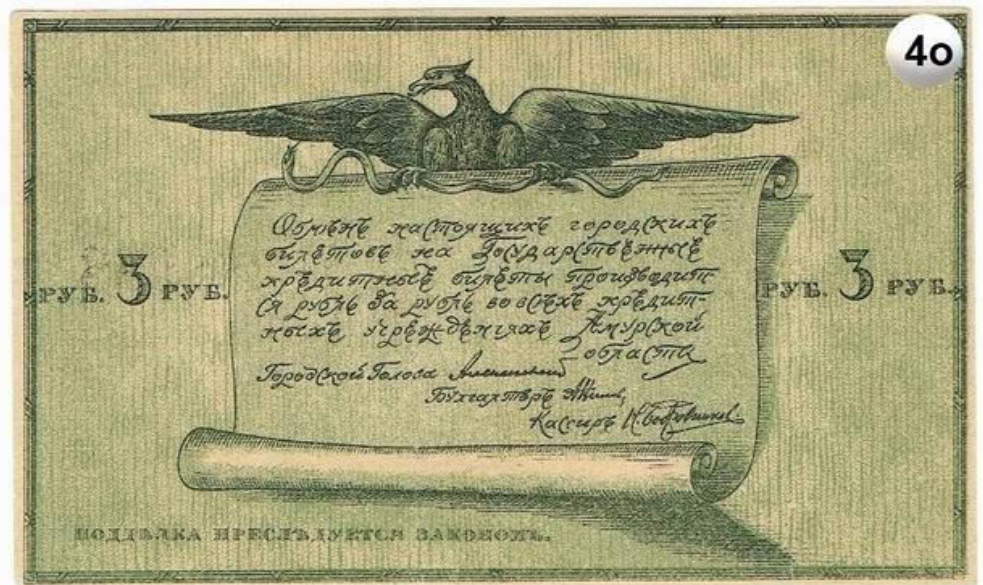 4о
Обмѣнъ настоящихъ городскихъ
билетовъ на Государственные
кредитные билеты производит
ся рубль за рубль во всѣхъ кредит-
ныхъ учрежденіяхъ Амурской
области
РУБ. 3 РУБ.
РУБ. 3 РУБ.
Городской Голова
Бухгалтеръ
Кассиръ
ПОДДѢЛКА ПРЕСЛѢДУЕТСЯ ЗАКОНОМЪ.